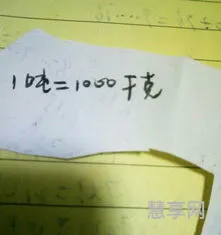 1吨=1000千克
慧享网